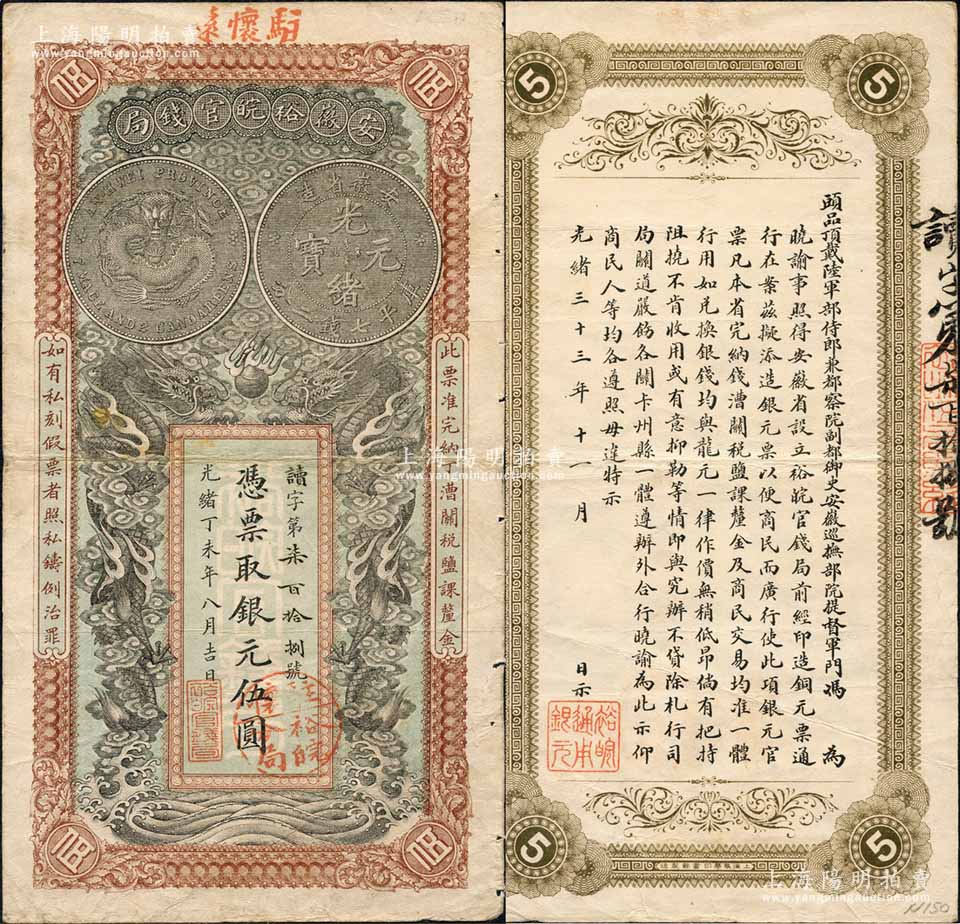 上海陽明拍賣
www.yangmingauction.com
駐懷遠
伍
伍
安徽裕皖官錢局
AN-HWEI PROVINCE
安徽省造
光緒元寶
庫平七錢
此票准完納錢漕關稅鹽課釐金
如有私刻假票者照私鑄例治罪
讀字第柒百拾捌號
憑票取銀元伍圓
光緒丁未年八月吉日
伍
伍
5
5
頭品頂戴陸軍部侍郎兼都察院副都御史安徽巡撫部院提督軍門馮 為
曉諭事照得安徽省設立裕皖官錢局前經印造銅元票通
行在案茲擬添造銀元票以便商民而廣行使此項銀元官
票凡本省完納錢漕關稅鹽課釐金及商民交易均准一體
行用如兌換銀錢均與龍元一律作價無稍低昂倘有把持
阻撓不肯收用或有意抑勒等情即與究辦不貸除札行司
局關道嚴飭各關卡州縣一體遵辦外合行曉諭為此示仰
商民人等均各遵照毋違特示
光緒三十三年十一月 日示
裕皖通用銀元
5
5
上海陽明拍賣
www.yangmingauction.com
上海陽明拍賣
www.yangmingauction.com
N150